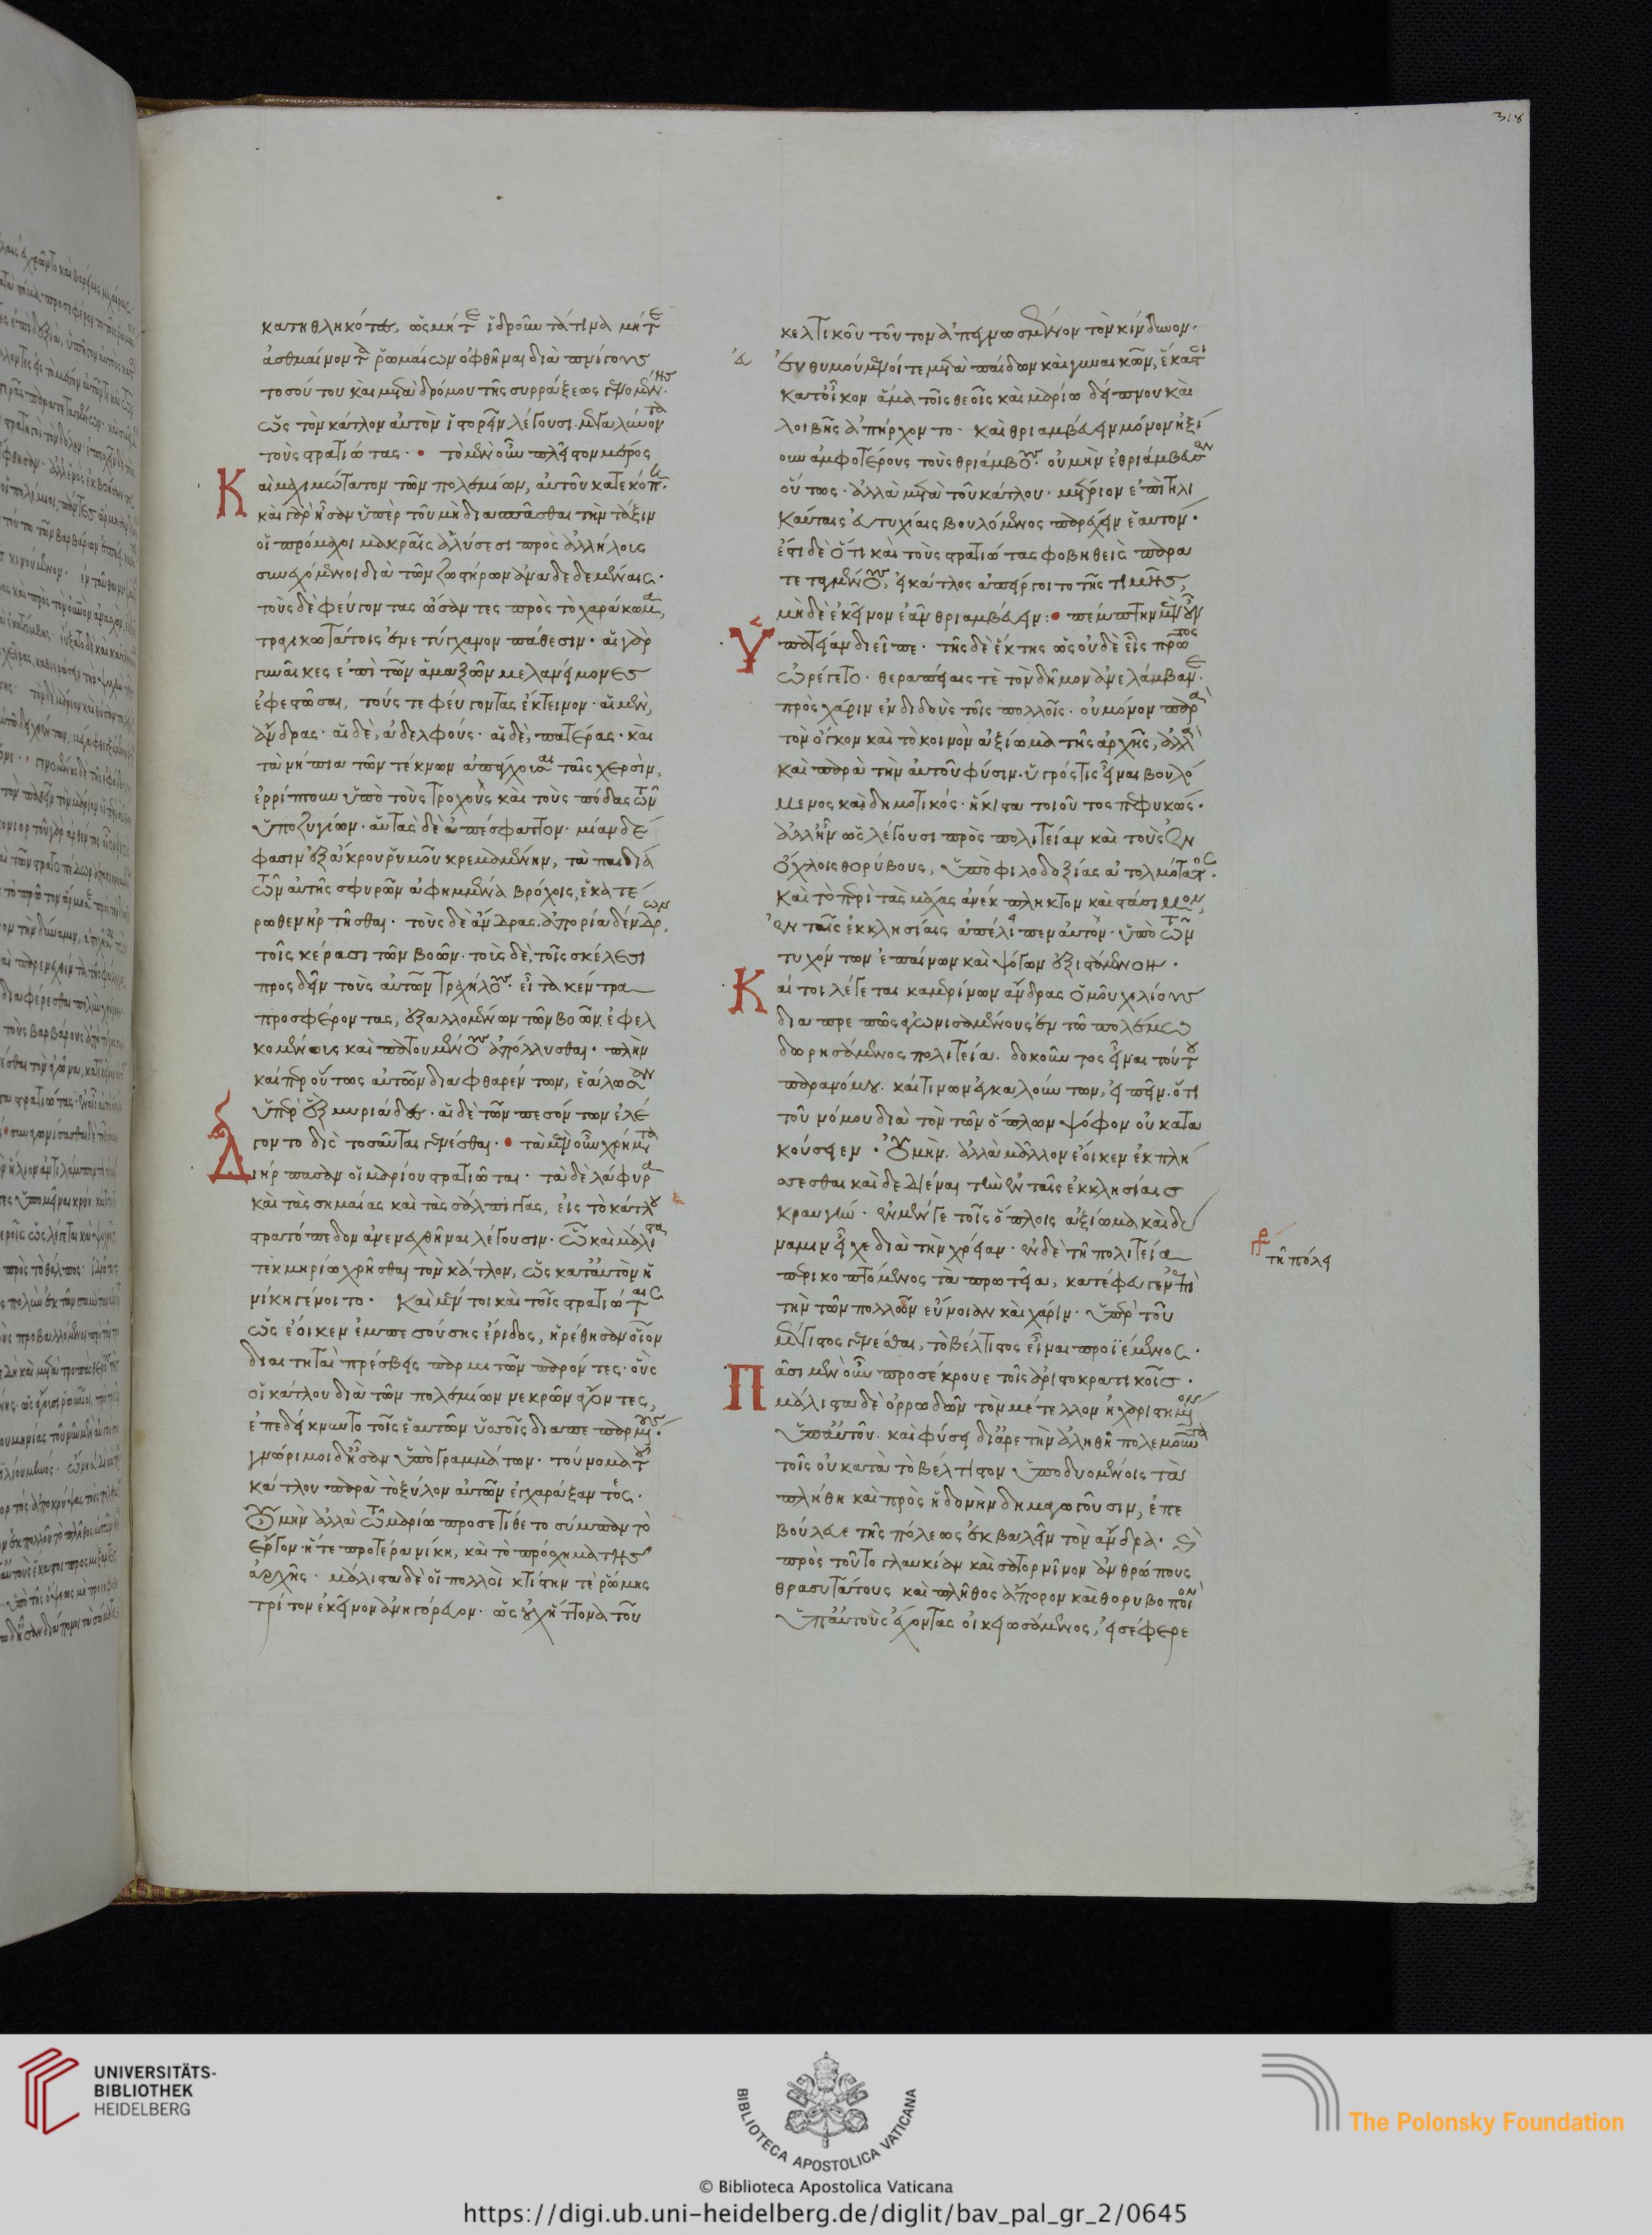 318
κατηθληκότες, ὡς μήτε ἱδροῦντά τινα μήτε
ἀσθμαίνοντα ῥωμαίων ὀφθῆναι διὰ πνίγους
τοσούτου καὶ μετὰ δρόμου τῆς συρράξεως γενομένης.
ὡς τὸν κάτλον αὐτὸν ἱστορεῖν λέγουσι μεγαλύνοντα
τοὺς στρατιώτας. τὸ μὲν οὖν πλεῖστον μέρος
Καὶ μαχιμώτατον τῶν πολεμίων, αὐτοῦ κατεκόπη.
καὶ γὰρ ἦσαν ὑπὲρ τοῦ μὴ διασπᾶσθαι τὴν τάξιν
οἱ πρόμαχοι μακραῖς ἁλύσεσι πρὸς ἀλλήλους
συνεχόμενοι διὰ τῶν ζωστήρων ἀναδεδεμέναις.
τοὺς δὲ φεύγοντας ὤσαντες πρὸς τὸ χαράκωμα,
τραγικωτάτοις ἐνετύγχανον πάθεσιν. αἱ γὰρ
γυναῖκες ἐπὶ τῶν ἁμαξῶν μελανείμονες
ἐφεστῶσαι, τούς τε φεύγοντας ἔκτεινον. αἱ μὲν,
ἄνδρας. αἱ δὲ, ἀδελφούς. αἱ δὲ, πατέρας. καὶ
τὰ νήπια τῶν τέκνων ἀπάγχουσαι ταῖς χερσὶν,
ἐρρίπτουν ὑπὸ τοὺς τροχοὺς καὶ τοὺς πόδας τῶν
ὑποζυγίων. αὑτὰς δὲ ἀπέσφαττον. μίαν δέ
φασιν ἐξ ἄκρου ῥυμοῦ κρεμαμένην, τὰ παιδία
τῶν αὑτῆς σφυρῶν ἀφημμένα βρόχοις, ἑκατέ
ρωθεν ἠρτῆσθαι. τοὺς δὲ ἄνδρας ἀπορίᾳ δένδρων,
τοῖς κέρασι τῶν βοῶν. τοὺς δὲ, τοῖς σκέλεσι
προσδεῖν τοὺς αὑτῶν τραχήλους. εἶτα κέντρα
προσφέροντας, ἐξαλλομένων τῶν βοῶν. ἐφελ
κομένους καὶ πατουμένους ἀπόλλυσθαι. πλὴν
καίπερ οὕτως αὐτῶν διαφθαρέντων, ἑάλωσαν
ὑπὲρ ἓξ μυριάδες. αἱ δὲ τῶν πεσόντων ἐλέ
γοντο δὶς τοσαῦται γενέσθαι. τὰ μὲν οὖν χρήματα
Διήρπασαν οἱ μαρίου στρατιῶται. τὰ δὲ λάφυρα
καὶ τὰς σημαίας καὶ τὰς σάλπιγγας, εἰς τὸ κάτλου
στρατόπεδον ἀνενεχθῆναι λέγουσιν. ᾧ καὶ μάλιστα
τεκμηρίῳ χρῆσθαι τὸν κάτλον, ὡς κατ' αὐτὸν ἡ
νίκη γένοιτο. Καὶ μέντοι καὶ τοῖς στρατιώταις
ὡς ἔοικεν ἐμπεσούσης ἔριδος, ᾑρέθησαν οἷον
διαιτηταὶ πρέσβεις παρμιτῶν παρόντες. οὓς
οἱ κάτλου διὰ τῶν πολεμίων νεκρῶν ἄγοντες,
ἐπεδείκνυντο τοῖς ἑαυτῶν ὑσσοῖς διαπεπαρμένους.
γνώριμοι δ' ἦσαν ὑπὸ γραμμάτων. τοὔνομα τοῦ
κάτλου παρὰ τὸ ξύλον αὐτῶν ἐγχαράξαντος.
Οὐ μὴν ἀλλὰ τῷ μαρίῳ προσετίθετο σύμπαν τὸ
ἔργον. ἥ τε προτέρα νίκη, καὶ τὸ πρόσχημα τῆς
ἀρχῆς. μάλιστα δὲ οἱ πολλοὶ κτίστην τὲ ῥώμης
τρίτον ἐκεῖνον ἀνηγόρευον. ὡς οὐχ ἥττονα τοῦ
κελτικοῦ τοῦτον ἀπεωσμένον τὸν κίνδυνον.
Εὐθυμούμενοί τε μετὰ παίδων καὶ γυναικῶν, ἕκαστοι
κατ' οἶκον ἅμα τοῖς θεοῖς καὶ μαρίῳ δείπνου καὶ
λοιβῆς ἀπήρχοντο. καὶ θριαμβεύειν μόνον ἠξί
ουν ἀμφοτέρους τοὺς θριάμβους. οὐ μὴν ἐθριάμβευσεν
οὕτως. ἀλλὰ μετὰ τοῦ κάτλου. μέτριον ἐπὶ τηλι
καύταις εὐτυχίαις βουλόμενος παρέχειν ἑαυτόν.
ἔστι δὲ ὅτι καὶ τοὺς στρατιώτας φοβηθεὶς παρα
τεταγμένους, εἰ κάτλος ἀπείργοιτο τῆς τιμῆς,
μηδὲ ἐκεῖνον ἐᾶν θριαμβεύειν: πέμπτην μὲν οὖν
Ὑπατείαν διεῖπε. τῆς δὲ ἕκτης ὡς οὐδὲ εἷς πρώτης
ὠρέγετο. θεραπείαις τὲ τὸν δῆμον ἀνελάμβανε.
πρὸς χάριν ἐνδιδοὺς τοῖς πολλοῖς. οὐ μόνον παρὰ
τὸν ὄγκον καὶ τὸ κοινὸν ἀξίωμα τῆς ἀρχῆς, ἀλλὰ
καὶ παρὰ τὴν αὑτοῦ φύσιν. ὑγρός τις εἶναι βουλό
μενος καὶ δημοτικός. ἥκιστα τοιοῦτος πεφυκώς.
ἀλλ' ἦν ὡς λέγουσι πρὸς πολιτείαν καὶ τοὺς ἐν
ὄχλοις θορύβους, ὑπὸ φιλοδοξίας ἀτολμότατος.
καὶ τὸ περὶ τὰς μάχας ἀνέκπληκτον καὶ στάσιμον,
ἐν ταῖς ἐκκλησίαις ἀπέλειπεν αὐτὸν. ὑπὸ τῶν
τυχόντων ἐπαίνων καὶ ψόγων ἐξιστάμενον.
Καίτοι λέγεται καμερίνων ἄνδρας ὁμοῦ χιλίους
διαπρεπῶς ἀγωνισαμένους ἐν τῷ πολέμῳ
δωρησάμενος πολιτείᾳ. δοκοῦντος εἶναι τούτου
παρανόμου. καί τινων ἐγκαλούντων, εἰπεῖν. ὅτι
τοῦ νόμου διὰ τὸν τῶν ὅπλων ψόφον οὐ κατα
κούσειεν. Οὐ μὴν ἀλλὰ μᾶλλον ἔοικεν ἐκπλή
σσεσθαι καὶ δεδιέναι τὴν ἐν ταῖς ἐκκλησίαις
κραυγήν. ἐν μέν γε τοῖς ὅπλοις ἀξίωμα καὶ δύ
ναμιν εἶχε διὰ τὴν χρείαν. ἐν δὲ τῇ πολιτείᾳ
περικοπτόμενος τὰ πρωτεῖα, κατέφευγεν ἐπὶ
τὴν τῶν πολλῶν εὔνοιαν καὶ χάριν. ὑπὲρ τοῦ
μέγιστος γενέσθαι, τὸ βέλτιστος εἶναι προϊέμενος.
Πᾶσι μὲν οὖν προσέκρουε τοῖς ἀριστοκρατικοῖς.
μάλιστα δὲ ὀρρωδῶν τὸν μέτελλον ἠχαριστημένον
ὑπ' αὐτοῦ. καὶ φύσει δι' ἀρετὴν ἀληθῆ πολεμοῦντα
τοῖς οὐ κατὰ τὸ βέλτιστον ὑποδυομένοις τὰ
πλήθη καὶ πρὸς ἡδονὴν δημαγωγοῦσιν, ἐπε
βούλευε τῆς πόλεως ἐκβαλεῖν τὸν ἄνδρα. καὶ
πρὸς τοῦτο γλαυκίαν καὶ σατορνῖνον ἀνθρώπους
θρασυτάτους καὶ πλῆθος ἄπορον καὶ θορυβοποιὸν
ὑπ' αὐτοὺς ἔχοντας οἰκειωσάμενος, εἰσέφερε
τῇ πόλει
UNIVERSITÄTS-
BIBLIOTHEK
HEIDELBERG
BIBLIOTECA APOSTOLICA VATICANA
The Polonsky Foundation
© Biblioteca Apostolica Vaticana
https://digi.ub.uni-heidelberg.de/diglit/bav_pal_gr_2/0645